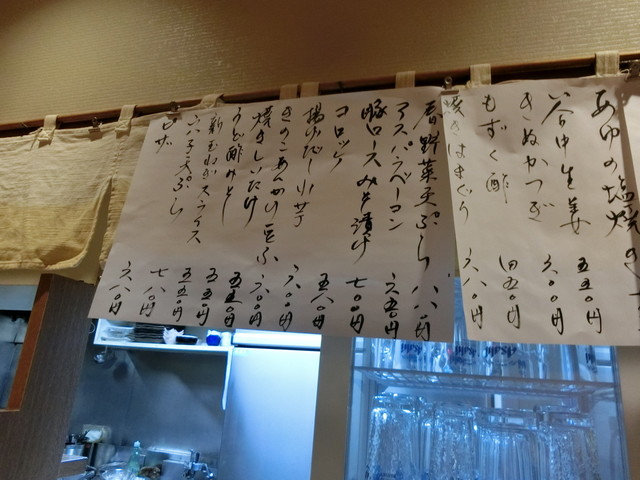 あゆの塩焼き
谷中生姜 五五〇円
きぬかつぎ 六〇〇円
もずく酢 四五〇円
焼きはまぐり 六八〇円
春野菜天ぷら 八八〇円
アスパラベーコン 六五〇円
豚ロースみそ漬け 七〇〇円
コロッケ 五八〇円
揚げだし小芋 六〇〇円
きのこあんかけ豆ふ 六〇〇円
焼きしいたけ 五五〇円
うど酢みそ 五五〇円
新玉ねぎスライス 五五〇円
天ぷら 七八〇円
ピザ 六八〇円
Asahi
Asahi